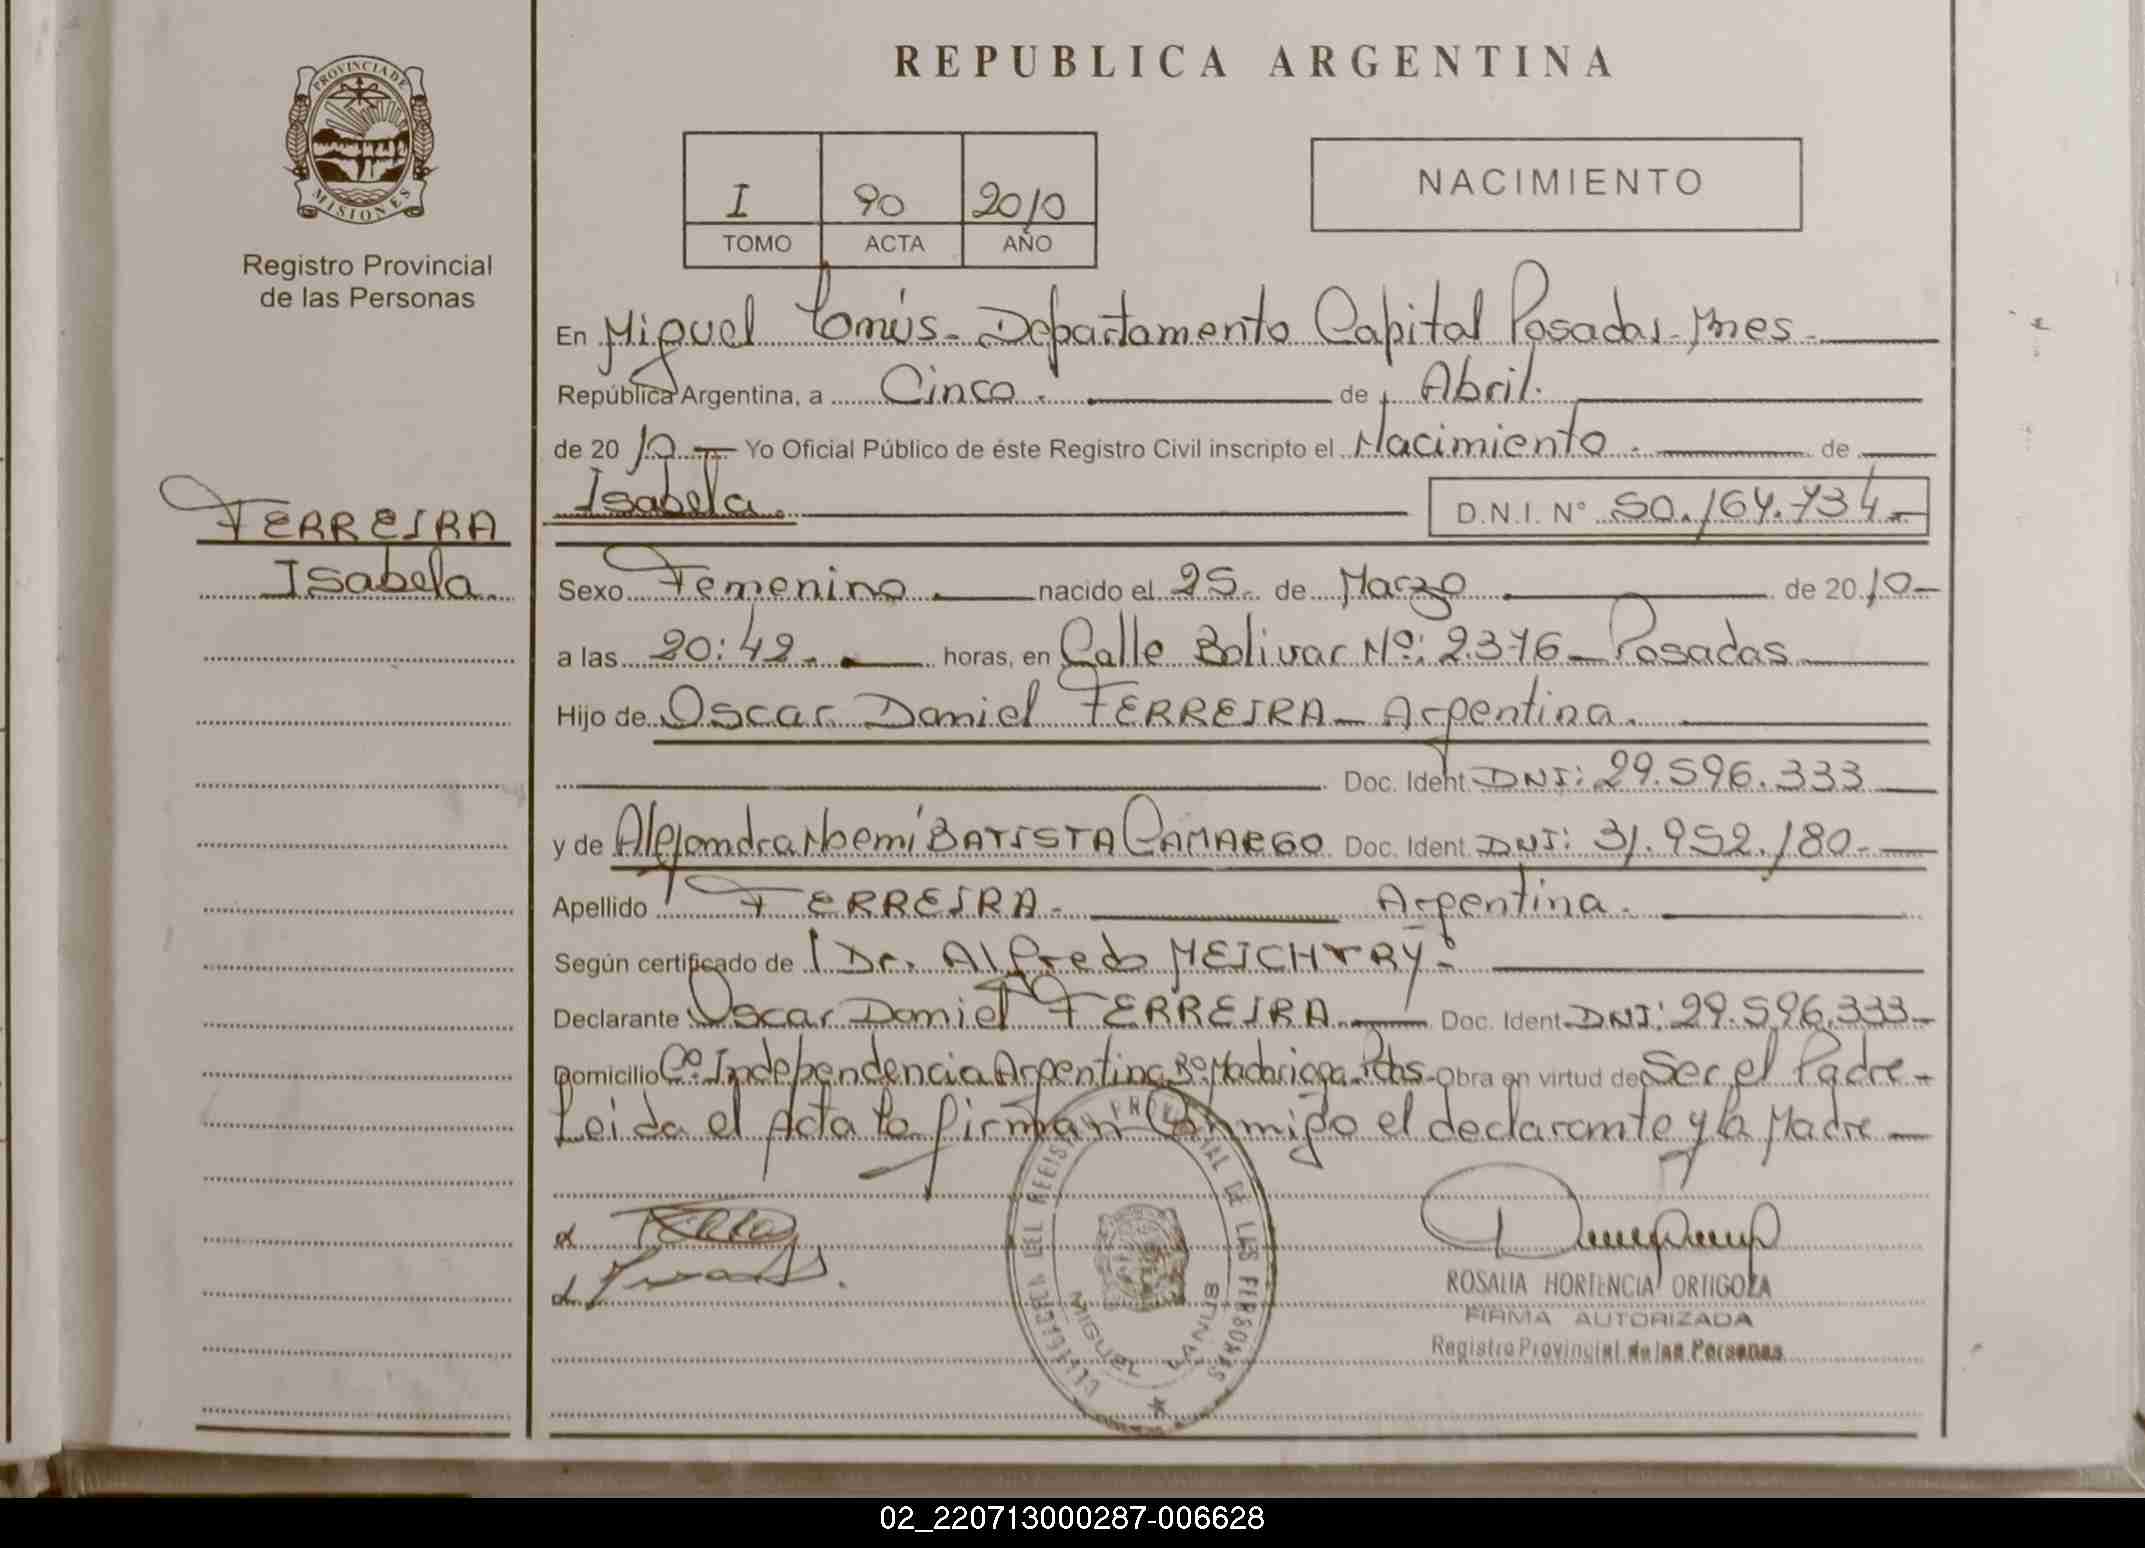 PROVINCIA DE
MISIONES
Registro Provincial
de las Personas
FERREIRA
Isabela.
REPUBLICA ARGENTINA
I 90 2010
TOMO ACTA AÑO
NACIMIENTO
En Miguel Lanús - Departamento Capital Posadas - Mnes -
República Argentina, a Cinco. de Abril.
de 20 10 - Yo Oficial Público de éste Registro Civil inscripto el Nacimiento. de
Isabela. D.N.I. N° 50.164.734-
Sexo Femenino. nacido el 25 de Marzo de 20 10-
a las 20:42. horas, en Calle Bolivar Nº: 2.376 - Posadas
Hijo de Oscar Daniel FERREIRA - Argentina.
Doc. Ident. DNI: 29.596.333
y de Alejandra Noemí BATISTA CAMARGO Doc. Ident. DNI: 31.952.180.-
Apellido FERREIRA - Argentina.
Según certificado de Dr. Alfredo MEICHTRY -
Declarante Oscar Daniel FERREIRA. Doc. Ident. DNI: 29.596.333-
Domicilio Cº: Independencia Argentina Bº Madariaga. Pdas - Obra en virtud de Ser el Padre -
Leida el Acta la firman Conmigo el declarante y la Madre -
DEL REGISTRO PROVINCIAL DE LAS PERSONAS
MIGUEL LANUS
ROSALIA HORTENCIA ORTIGOZA
FIRMA AUTORIZADA
Registro Provincial de las Personas
02_220713000287-006628